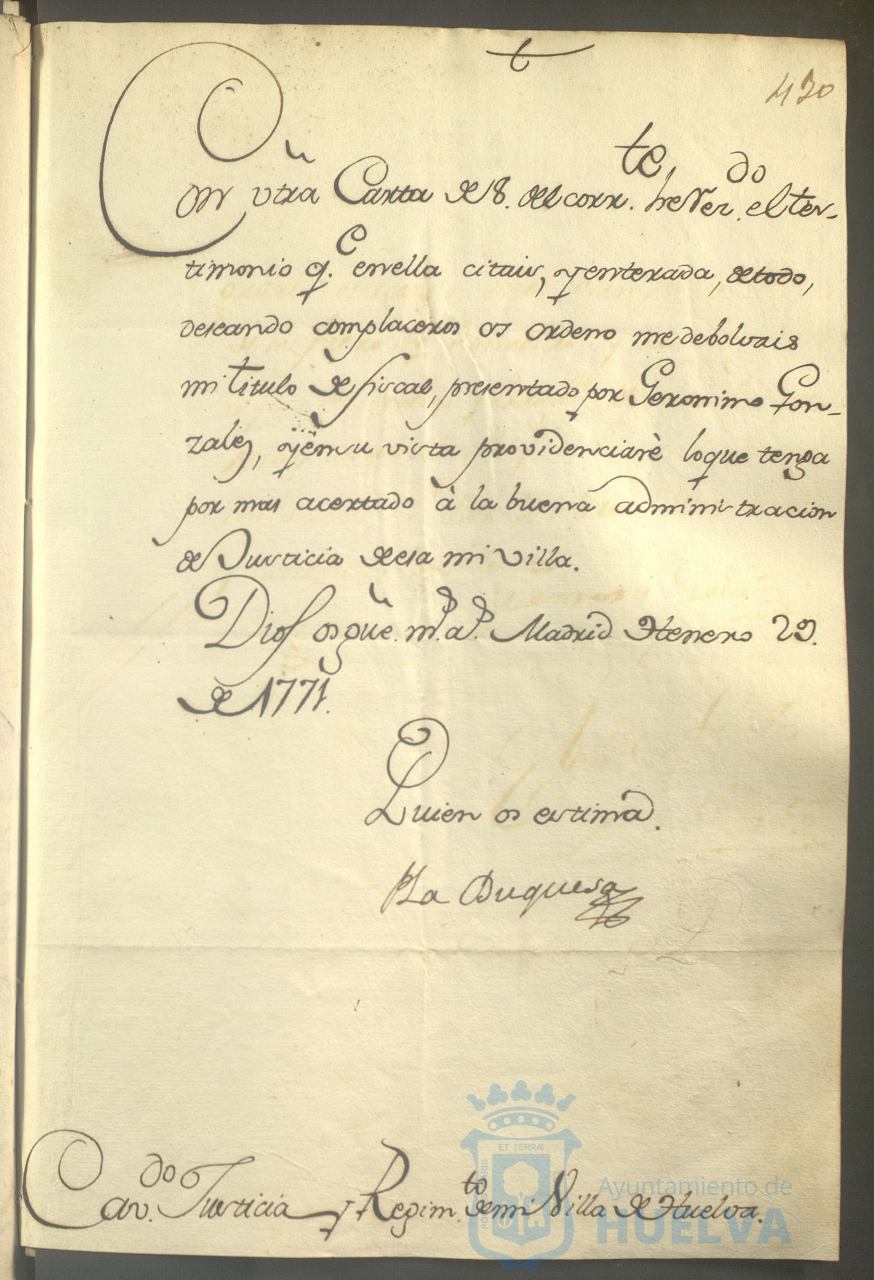 t
430
Con vtrã Carta de 18. del corr.te he Rez.do el tes-
timonio q.e en ella citais, y enterada, de todo,
deseando complaceros os ordeno me debolvais
mi titulo de fiscal, presentado por Geronimo Gon-
zalez, y en su vista providenciarè lo que tenga
por mas acertado à la buena administracion
de Justicia de esa mi villa.
Dios os güe. m.s a.s Madrid Henero 29.
de 1771.
Quien os estima.
La Duquesa
Cav.do Justicia y Regim.to de mi Villa de Huelva.
ET TERRÆ
Ayuntamiento de
HUELVA